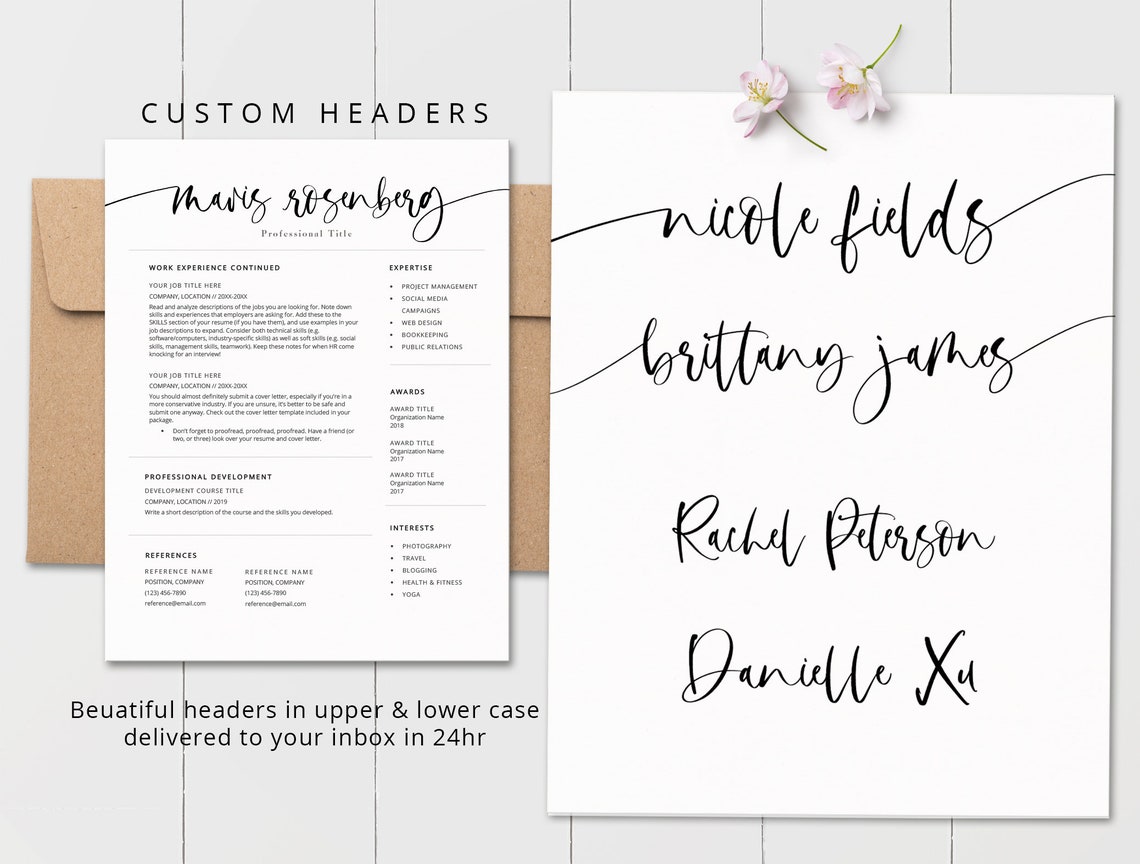 CUSTOM HEADERS
mavis rosenberg
Professional Title
WORK EXPERIENCE CONTINUED
YOUR JOB TITLE HERE
COMPANY, LOCATION // 20XX-20XX
Read and analyze descriptions of the jobs you are looking for. Note down
skills and experiences that employers are asking for. Add these to the
SKILLS section of your resume (if you have them), and use examples in your
job descriptions to expand. Consider both technical skills (e.g.
software/computers, industry-specific skills) as well as soft skills (e.g. social
skills, management skills, teamwork). Keep these notes for when HR come
knocking for an interview!
YOUR JOB TITLE HERE
COMPANY, LOCATION // 20XX-20XX
You should almost definitely submit a cover letter, especially if you're in a
more conservative industry. If you are unsure, it's better to be safe and
submit one anyway. Check out the cover letter template included in your
package.
• Don't forget to proofread, proofread, proofread. Have a friend (or
two, or three) look over your resume and cover letter.
PROFESSIONAL DEVELOPMENT
DEVELOPMENT COURSE TITLE
COMPANY, LOCATION // 2019
Write a short description of the course and the skills you developed.
REFERENCES
REFERENCE NAME
POSITION, COMPANY
(123) 456-7890
reference@email.com
REFERENCE NAME
POSITION, COMPANY
(123) 456-7890
reference@email.com
EXPERTISE
• PROJECT MANAGEMENT
• SOCIAL MEDIA
CAMPAIGNS
• WEB DESIGN
• BOOKKEEPING
• PUBLIC RELATIONS
AWARDS
AWARD TITLE
Organization Name
2018
AWARD TITLE
Organization Name
2017
AWARD TITLE
Organization Name
2017
INTERESTS
• PHOTOGRAPHY
• TRAVEL
• BLOGGING
• HEALTH & FITNESS
• YOGA
Beuatiful headers in upper & lower case
delivered to your inbox in 24hr
nicole fields
brittany james
Rachel Peterson
Danielle Xu